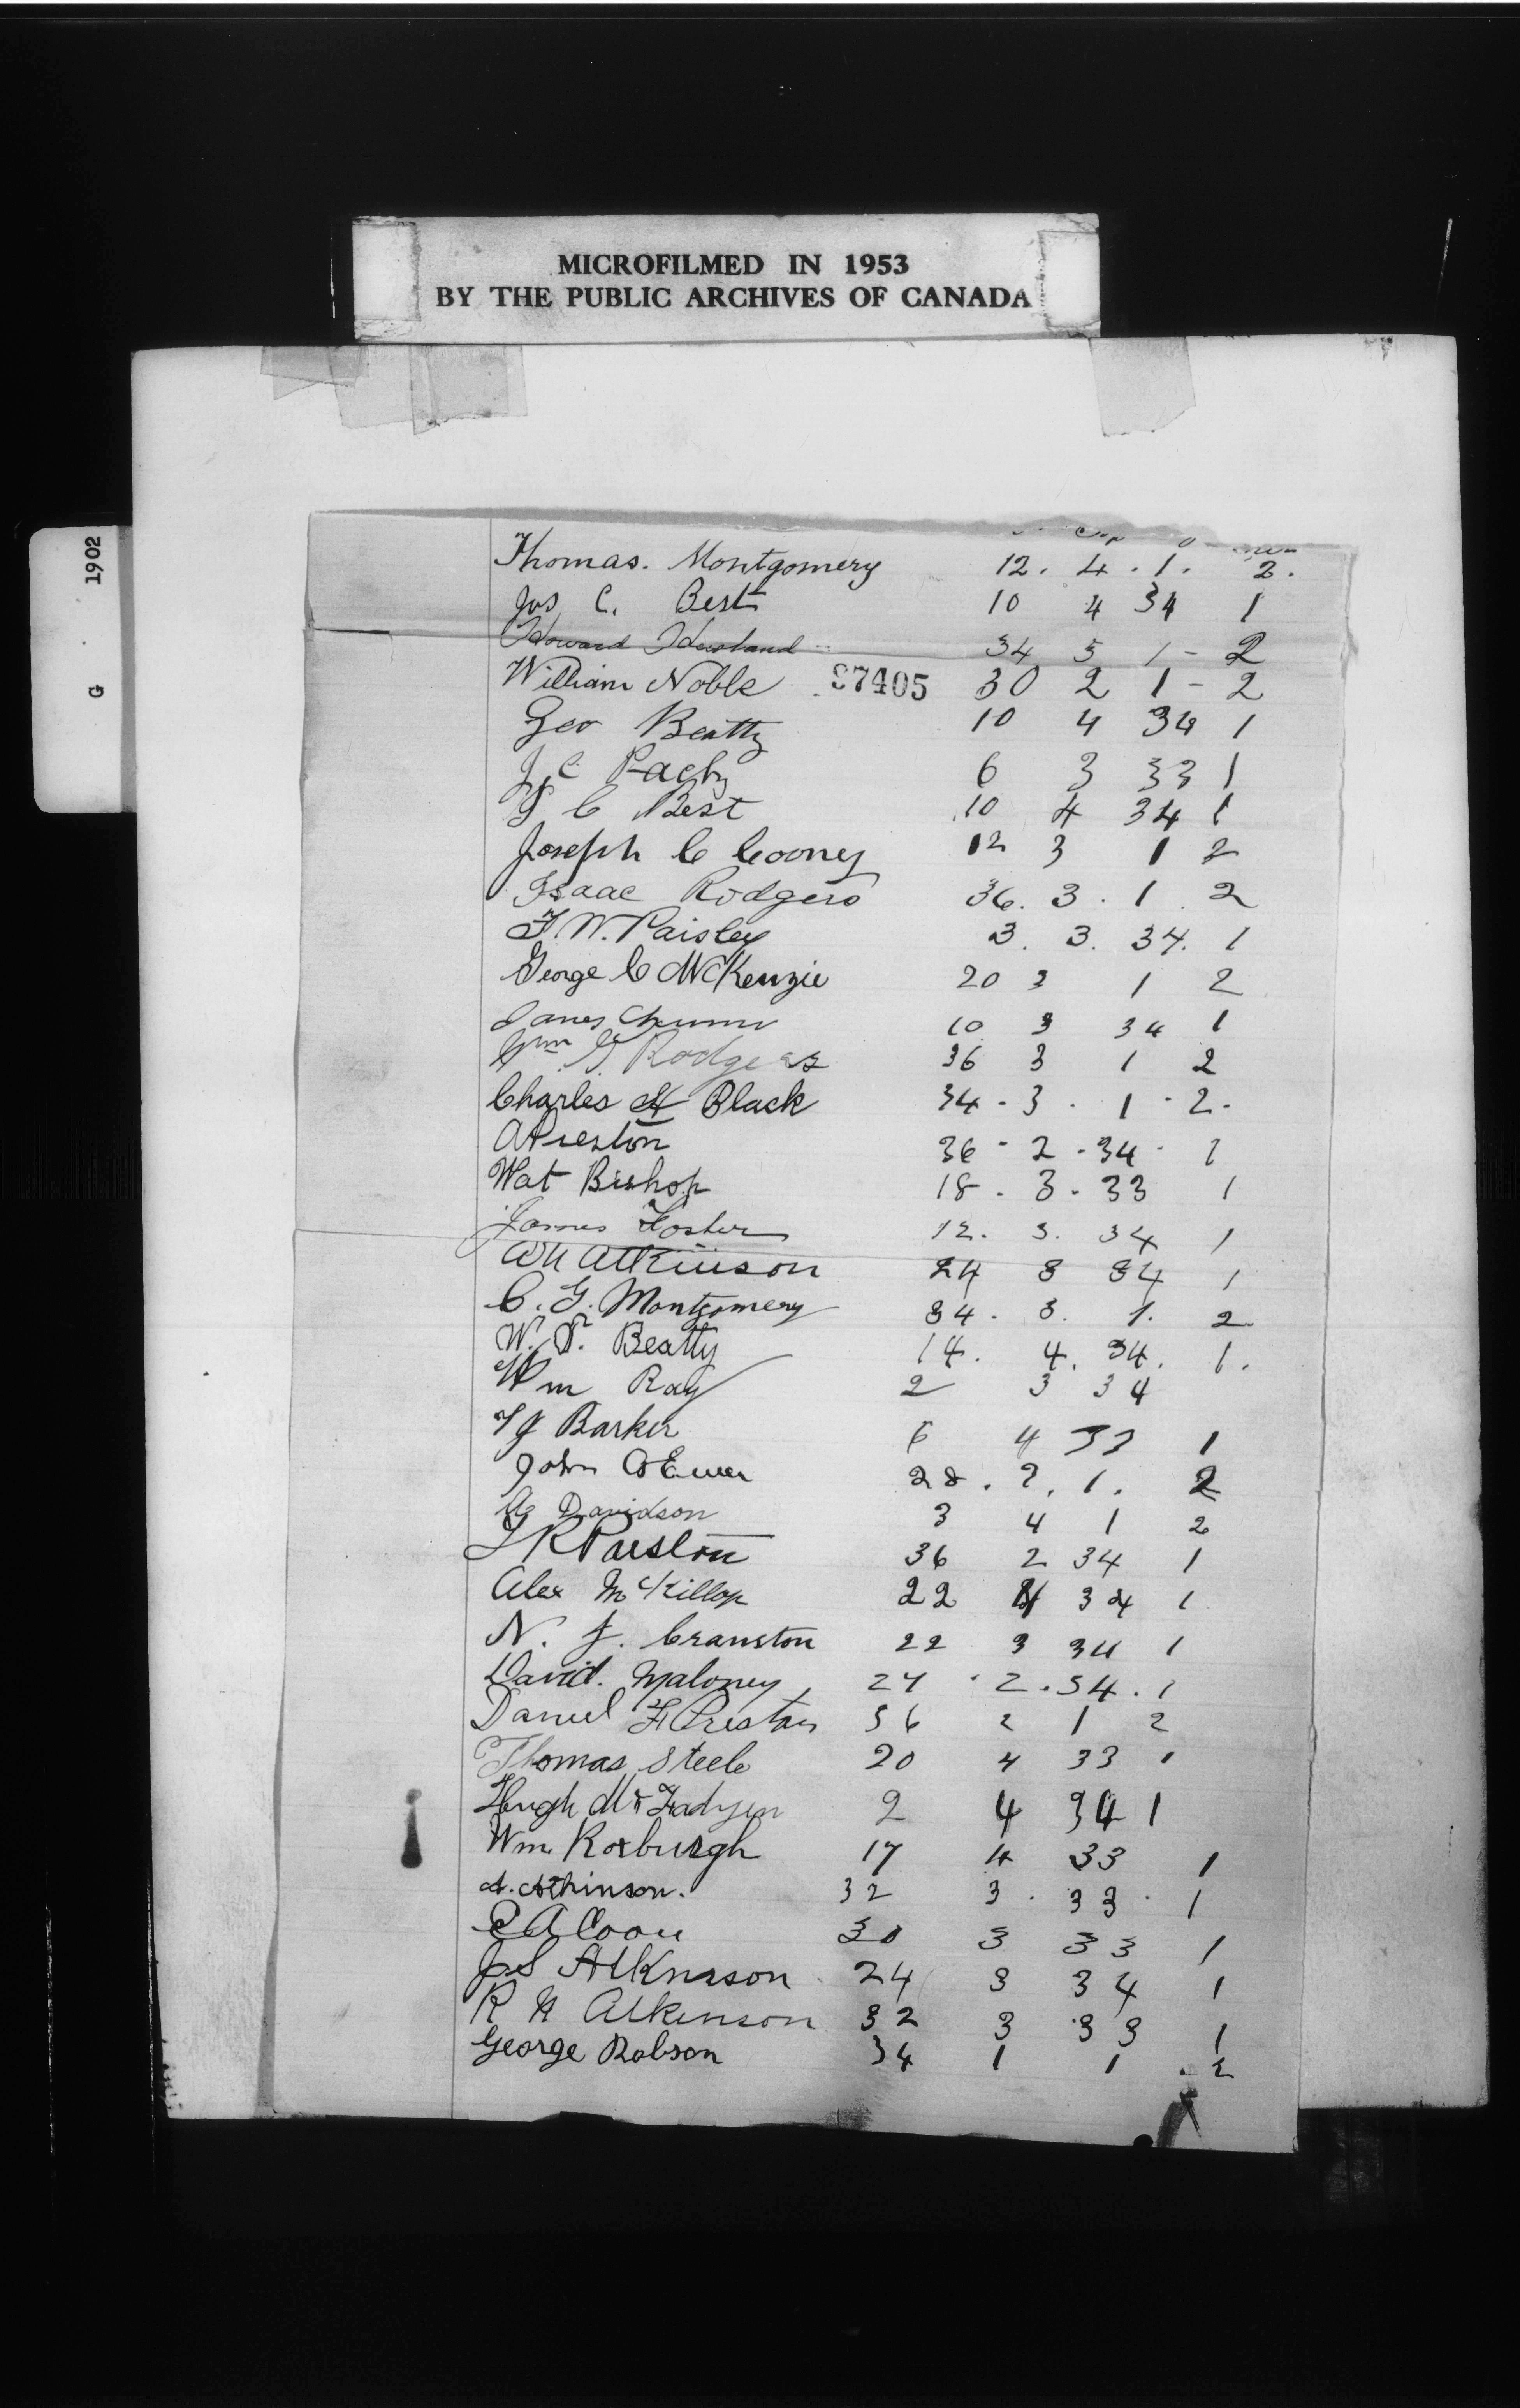 MICROFILMED IN 1953
BY THE PUBLIC ARCHIVES OF CANADA
G 1902
Thomas. Montgomery 12. 4. 1. 2.
Jos C. Best 10 4 34 1
Howard 34 3 1 - 2
William Noble 87405 30 2 1 - 2
Geo Beatty 10 4 34 1
J. C. 6 3 33 1
J C Best 10 4 34 1
Joseph C Cooney 12 3 1 2
Isaac Rodgers 36. 3. 1. 2
T. W. Paisley 3. 3. 34. 1
George C McKenzie 20 3 1 2
James 10 3 34 1
Wm G. Rodgers 36 3 1 2
Charles H Black 34 - 3 - 1 - 2 -
A Preston 36 - 2 - 34 - 1
Wat Bishop 18. 3 - 33 1
James Foster 12. 3. 34 1
Atkinson 24 3 34 1
C. G. Montgomery 34. 3. 1. 2
W. T. Beatty 14. 4. 34. 1.
Wm Ray 2 3 34
T J Barker 6 4 33 1
John 28. 2. 1. 2
A Davidson 3 4 1 2
Preston 36 2 34 1
Alex McKillop 22 34 1
N. J. Cranston 22 3 34 1
David. Maloney 24 . 2. 34. 1
Daniel F Preston 36 2 1 2
Thomas Steele 20 4 33 1
Hugh McFadyen 2 4 34 1
Wm Roxburgh 17 4 33 1
A. Atkinson. 32 3. 33. 1
Coon 30 3 33 1
J. S Atkinson 24 3 34 1
R N Atkinson 32 3 33 1
George Robson 34 1 1 2